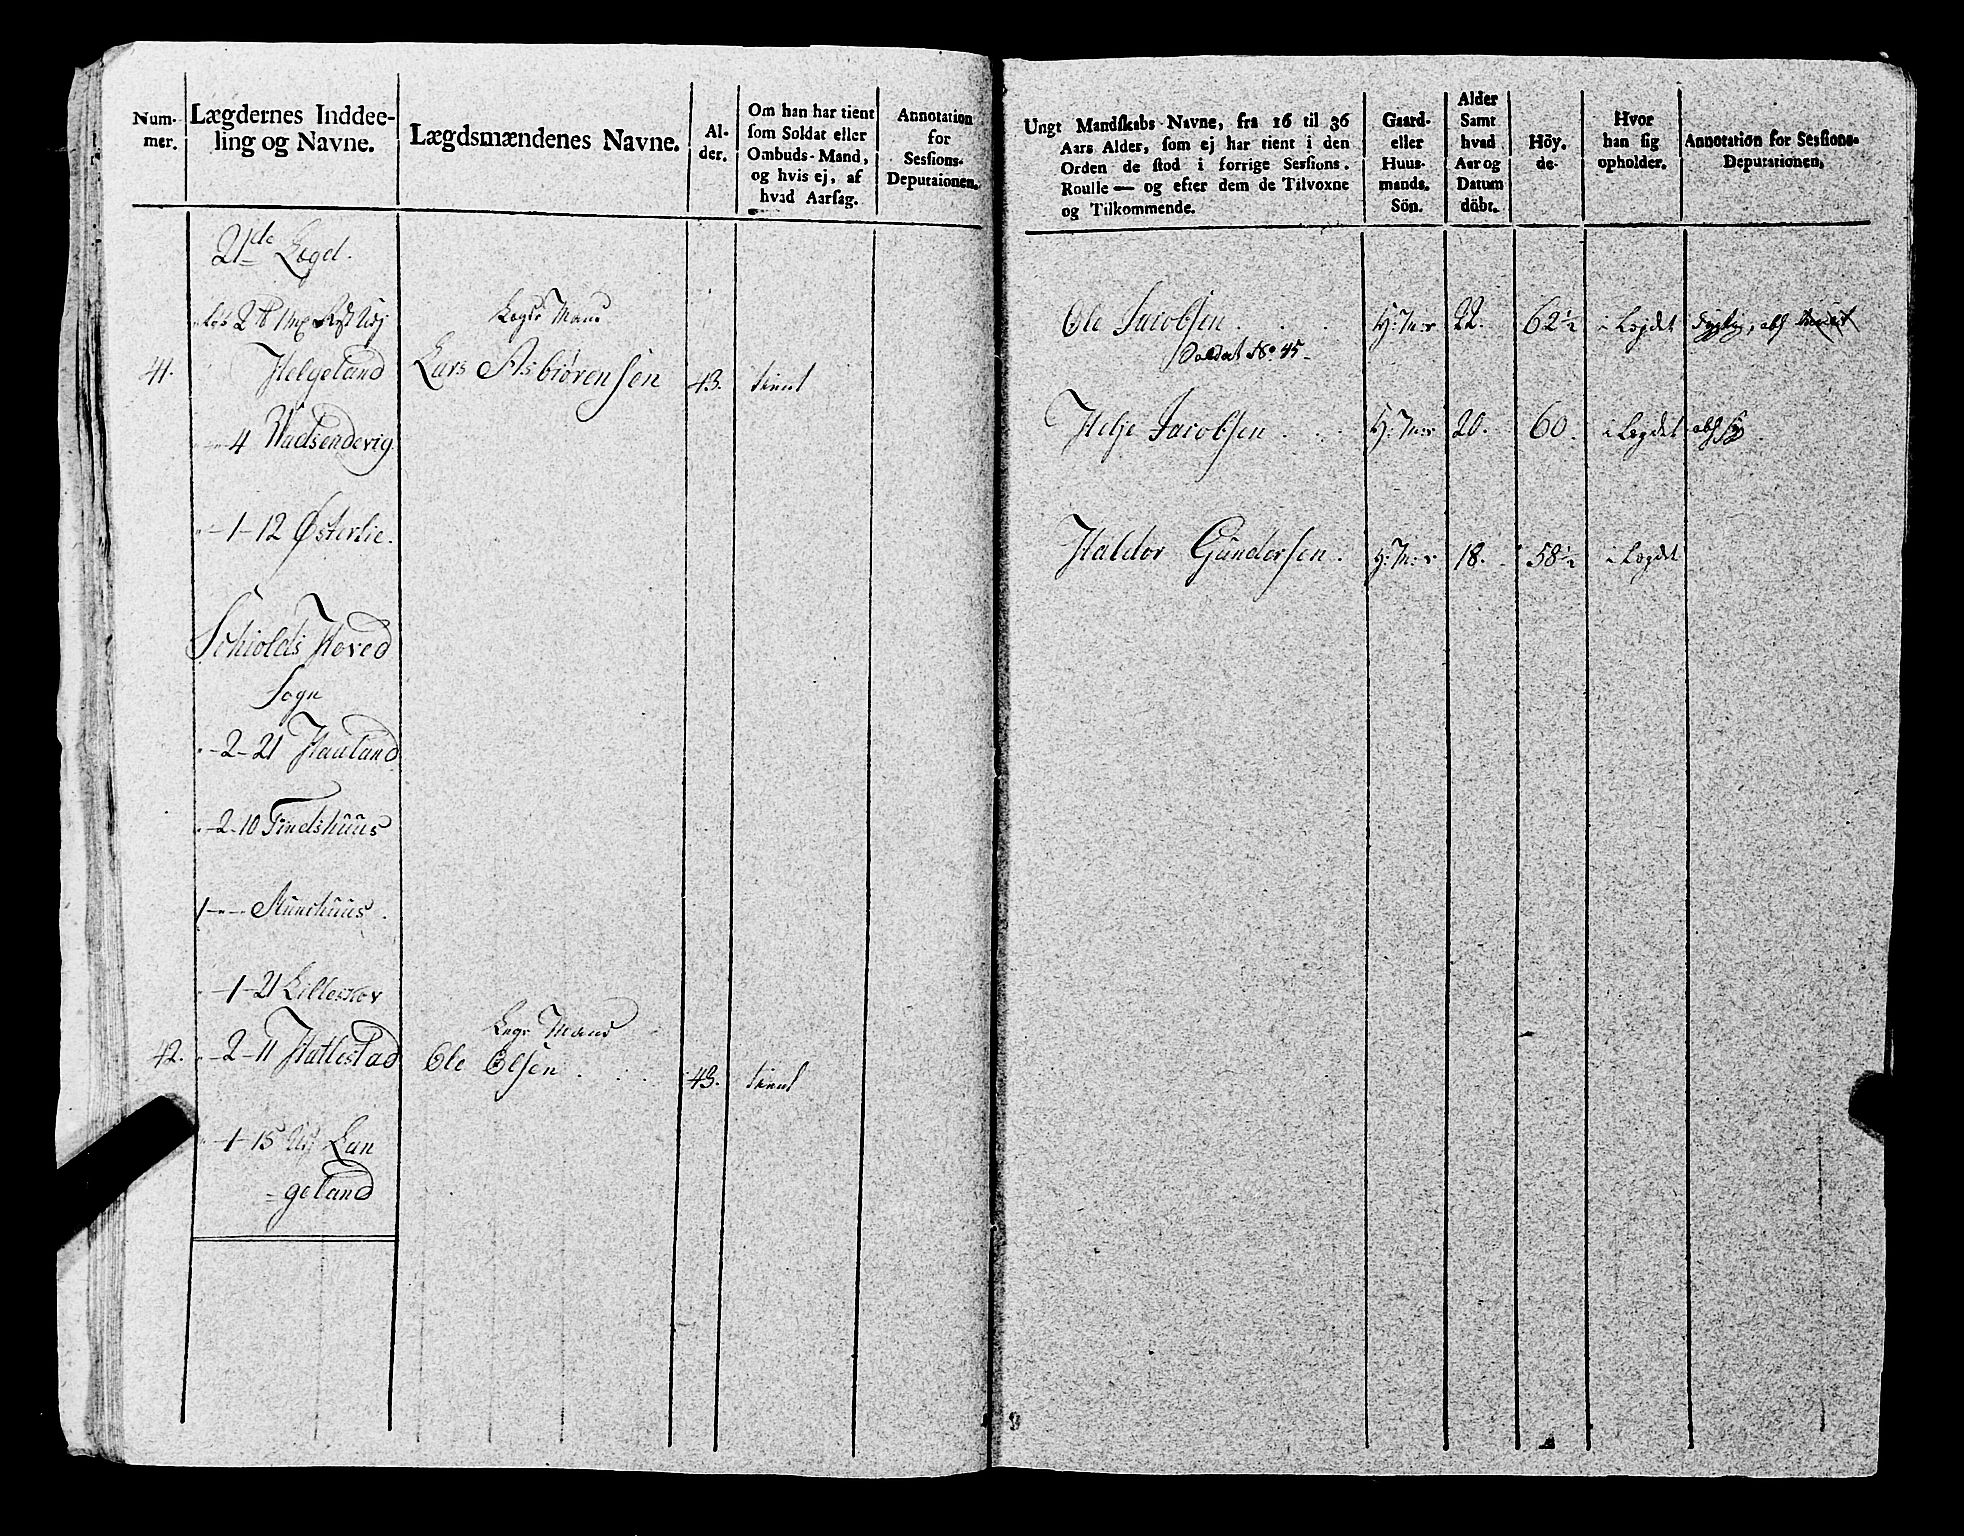 Num-
mer.
Lægdernes Inddee-
ling og Navne.
Lægdsmændenes Navne.
Al-
der.
Om han har tient
som Soldat eller
Ombuds-Mand,
og hvis ej, af
hvad Aarsag.
Annotation
for
Sessions-
Deputaionen.
21de Lægd.
Lægds Mand
41. Helgeland Lars Asbiørensen 43. tient
4 Wadsendevig
-1-12 Østerlie.
Schiolds Hoved
Sogn
-2-21 Hauland
-2-10 Findshuus
1-"- Kunshuus.
-1-21 Lilleskov
Lægs Mand
42. -2-11 Hatlestad Ole Olsen . . . 43. tient
-1-15 Lan
-geland
Ungt Mandskabs Navne, fra 16 til 36
Aars Alder, som ej har tient i den
Orden de stod i forrige Sessions.
Roulle — og efter dem de Tilvoxne
og Tilkommende.
Gaard-
eller
Huus-
mands.
Sön.
Alder
Samt
hvad
Aar og
Datum
döbt.
Höy.
de-
Hvor
han sig
opholder.
Annotation for Sessions-
Deputationen.
Ole Jacobsen . . . H:M:s 22. 62½ i Lægdet
Soldat No 45
Helje Jacobsen . . . H:M:s 20. 60. i Lægdet
Haldor Gundersen . H:M:s 18. 58½ i Lægdet